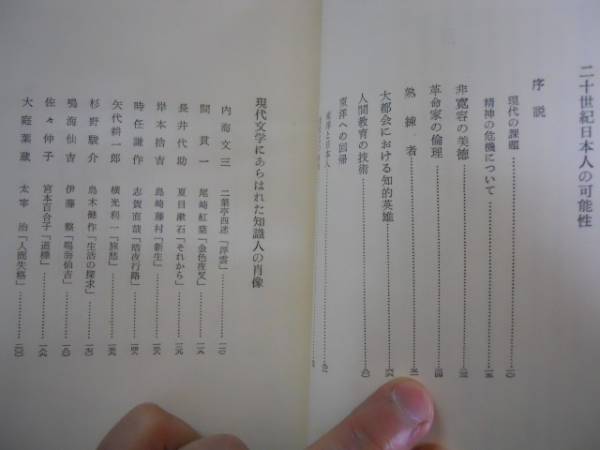 二十世紀日本人の可能性
序説
現代の課題
精神の危機について
非寛容の美徳
革命家の倫理
熟練者
大都会における知的英雄
人間教育の技術
東洋への回帰
東洋と日本人
現代文学にあらはれた知識人の肖像
内海文三 二葉亭四迷「浮雲」
間貫一 尾崎紅葉「金色夜叉」
長井代助 夏目漱石「それから」
岸本捨吉 島崎藤村「新生」
時任謙作 志賀直哉「暗夜行路」
矢代耕一郎 横光利一「旅愁」
杉野駿介 島木健作「生活の探求」
鳴海仙吉 伊藤整「鳴海仙吉」
佐々伸子 宮本百合子「道標」
大庭葉蔵 太宰治「人間失格」